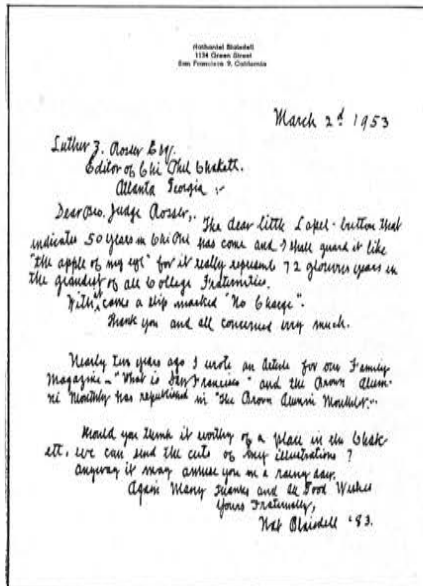 Nathaniel Blaisdell
1134 Green Street
San Francisco 9, California
March 2d 1953
Luther Z. Rosser Esq.
Editor of Chi Phi Chakett.
Atlanta Georgia :-
Dear Bro. Judge Rosser,. The dear little Lapel-button that
indicates 50 years in Chi Phi has come and I shall guard it like
"the apple of my eye" for it really represents 72 glorious years in
the grandest of all College Fraternities.
With it came a slip marked "No Charge".
Thank you and all concerned very much.
Nearly two years ago I wrote an Article for our Family
Magazine - "What is San Francisco" and the Brown Alum-
ni Monthly has republished in "The Brown Alumni Monthly."
Would you think it worthy of a place in the Chak-
ett, we can send the cuts of my illustrations?
Anyway it may amuse you on a rainy day.
Again Many Thanks and all Good Wishes
Yours Fraternally,
Nat Blaisdell '83.